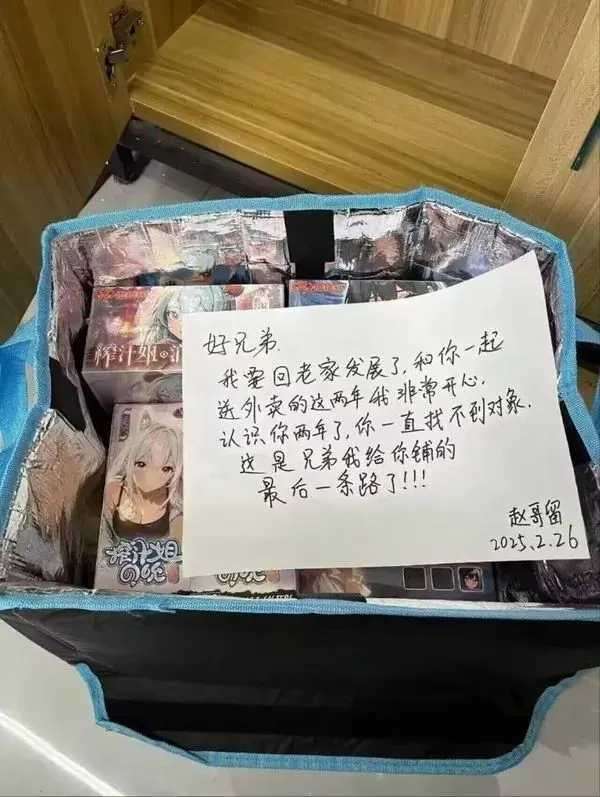 榨汁姐の
好兄弟.
我要回老家发展了,和你一起
送外卖的这两年我非常开心.
认识你两年了,你一直找不到对象.
这是兄弟我给你铺的
最后一条路了!!!
赵哥留
2025.2.26
榨汁姐
の